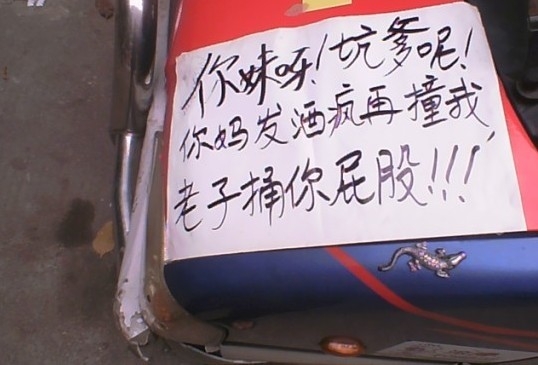 你妹呀!坑爹呢!
你妈发酒疯再撞我,
老子捅你屁股!!!